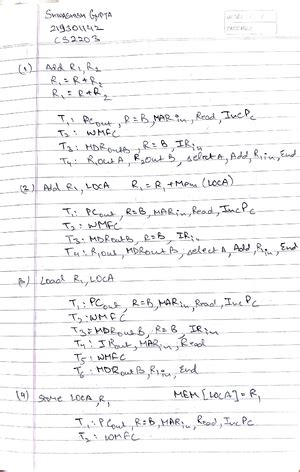 219301142
CS2203
(1) Add R1, R2
R1 = R1+R2
R1 = R1+R2
T1: PCout, R=B, MARin, Read, IncPC
T2: WMFC
T3: MDRoutB, R=B, IRin
T4: R1outA, R2outB, selectA, Add, R1in, End
(2) Add R1, LOCA R1 = R1 + Mem (LOCA)
T1: PCout, R=B, MARin, Read, IncPC
T2: WMFC
T3: MDRoutB, R=B, IRin
T4: R1out, MDRoutB, selectA, Add, R1in, End
Load R1, LOCA
T1: PCout, R=B, MARin, Read, IncPC
T2: WMFC
T3: MDRoutB, R=B IRin
T4: IRout, MARin, Read
T5 WMFC
T6: MDRoutB, R1in, End
(4) Store LOCA, R1 MEM [LOCA] = R1
T1: PCout, R=B, MARin, Read, IncPC
T2: WMFC